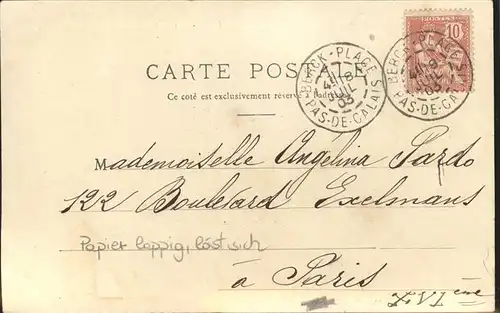 POSTES
10
BERCK-PLAGE
JUIL
03
PAS-DE-CALAIS
BERCK-PLAGE
JUIL
03
PAS-DE-CALAIS
CARTE POSTALE
Ce côté est exclusivement réservé à l'adresse
Mademoiselle Angélina Pardo
122 Boulevard Exelmans
Papier lappig, löst sich
à Paris
XVIème